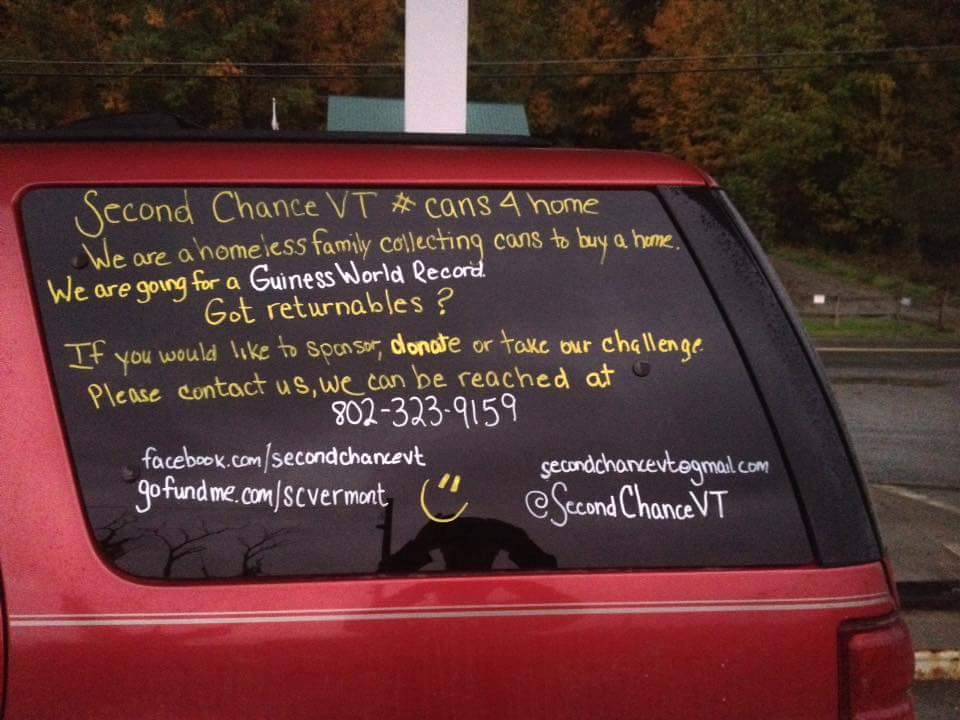 Second Chance VT # cans 4 home
We are a homeless family collecting cans to buy a home.
We are going for a Guiness World Record.
Got returnables ?
If you would like to sponsor, donate or take our challenge.
Please contact us, we can be reached at
802-323-9159
facebook.com/secondchancevt
gofundme.com/scvermont
secondchancevt@gmail.com
@SecondChanceVT